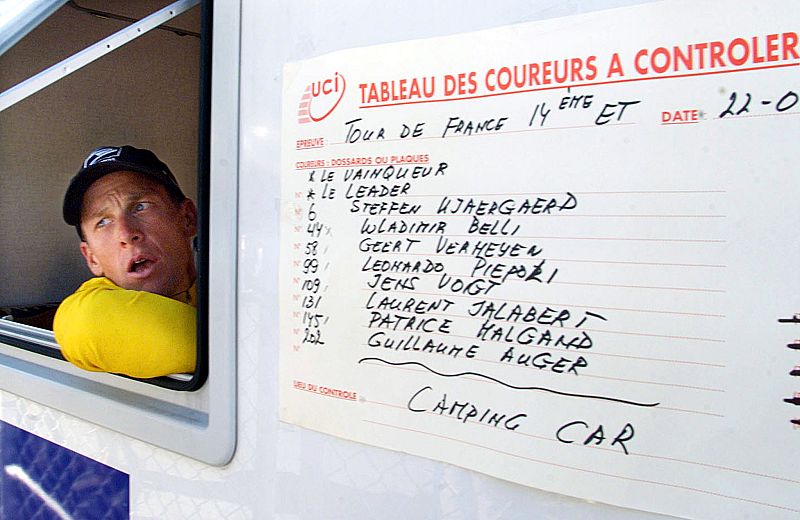 UCI
TABLEAU DES COUREURS A CONTROLER
EPREUVE : TOUR DE FRANCE 14 ÈME ET DATE : 22-0
COUREURS : DOSSARDS OU PLAQUES
* LE VAINQUEUR
N° * LE LEADER
N° 6 STEFFEN KJAERGAERD
N° 44 WLADIMIR BELLI
N° 58 GEERT VERHEYEN
N° 99 LEONARDO PIEPOLI
N° 109 JENS VOIGT
N° 131 LAURENT JALABERT
N° 145 PATRICE HALGAND
N° 202 GUILLAUME AUGER
LIEU DU CONTROLE CAMPING CAR